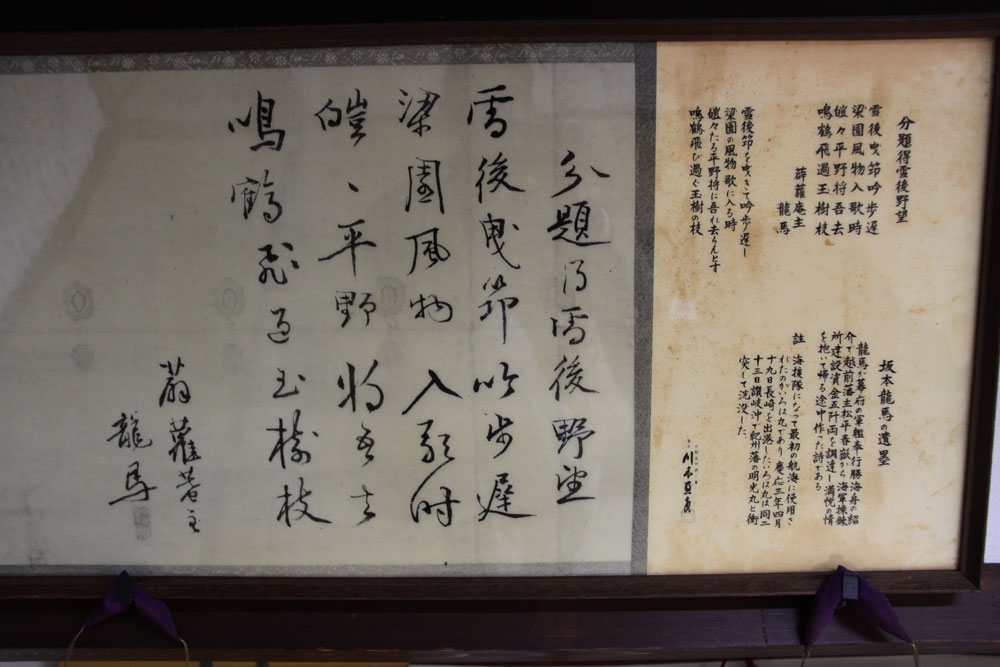 分題得雪後野望
雪後曳筇吟歩遅
梁園風物入歌時
皚々平野将吾去
鳴鶴飛過玉樹枝
薜蘿庵主
龍馬
雪後筇を曳きて吟歩遅し
梁園の風物歌に入る時
皚々たる平野将に吾れ去らんとす
鳴鶴飛び過ぐ玉樹の枝
坂本龍馬の遺墨
龍馬が幕府の軍艦奉行勝海舟の紹
介で越前藩主松平春嶽から海軍操錬
所建設資金五阡両を調達し満悦の情
を抱いて帰る途中作った詩である
註 海援隊になって最初の航海に使用さ
れたのがいろは丸であり慶応三年四月
十九日長崎を出港したいろは丸は同二
十三日讃岐沖で紀州藩の明光丸と衝
突して沈没した
分題得雪後野望
雪後曳筇吟歩遅
梁園風物入歌時
皚々平野将吾去
鳴鶴飛過玉樹枝
薜蘿菴主
龍馬